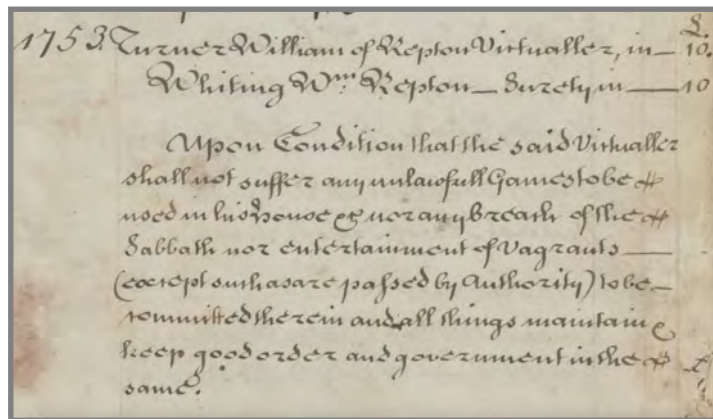 £.
1753. Turner William of Repton Victualler, in — 10.
Whiting Wm. Repton — Surety in — 10
Upon Condition that the said Victualler
shall not suffer any unlawfull Games to be
used in his house & nor any breach of the
Sabbath nor entertainment of Vagrants —
(except such as are passed by Authority) to be —
committed therein and all things maintain &
keep good order and government in the
same.